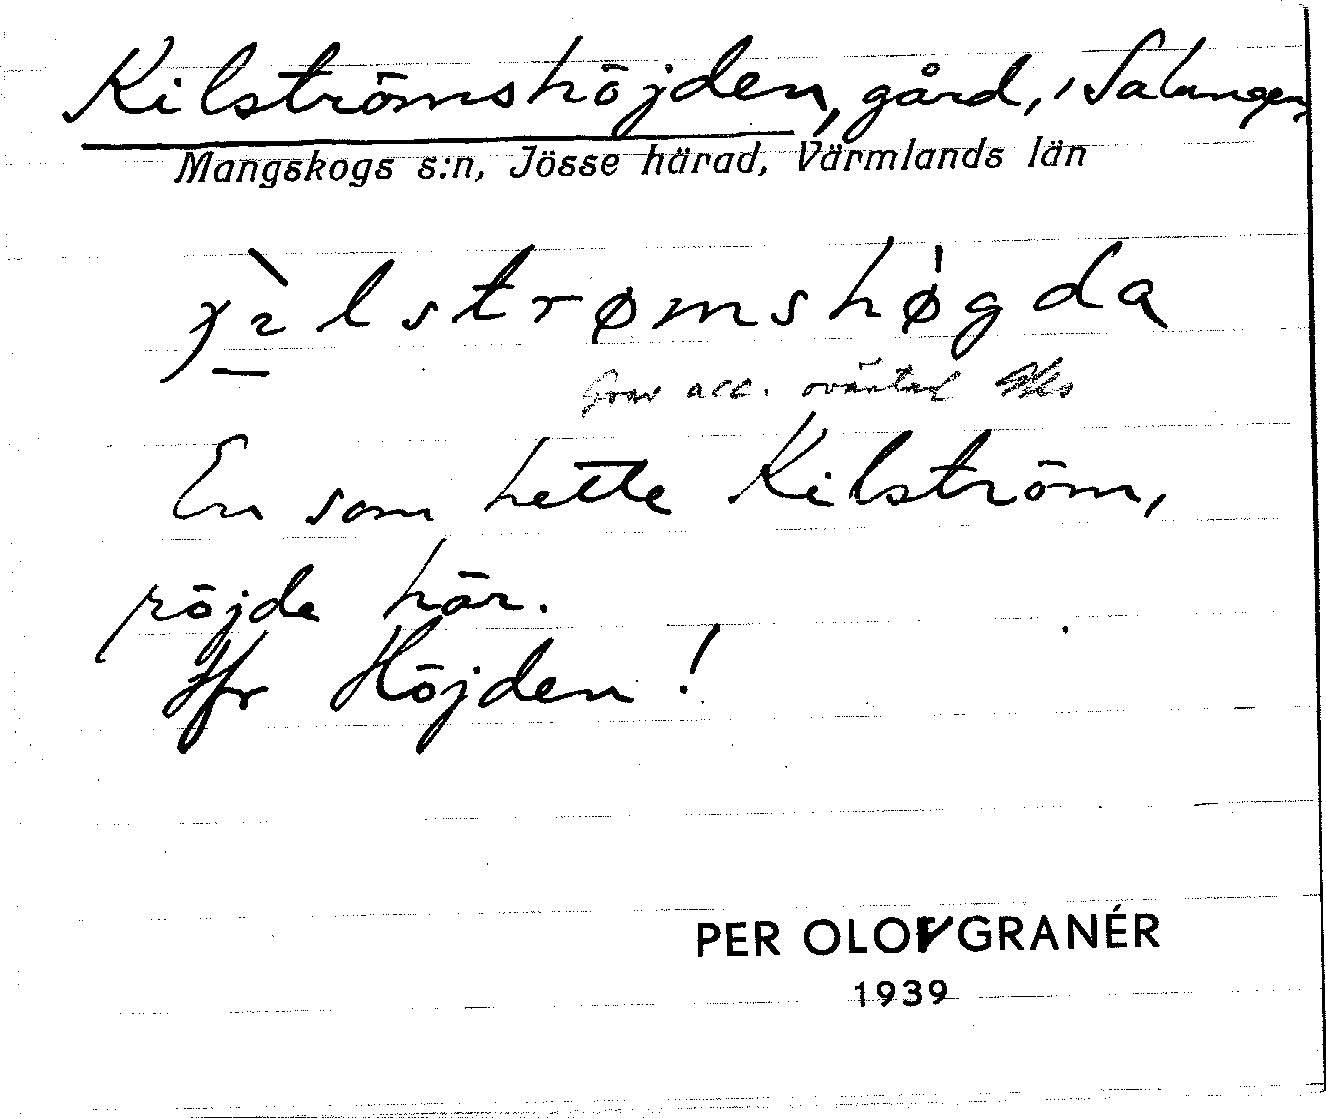 Kilströmshöjden, gård, i Salungen,
Mangskogs s:n, Jösse härad, Värmlands län
Grav acc. oväntad
En som hette Kilström,
röjde här.
Jfr Höjden!
PER OLOF GRANÉR
1939